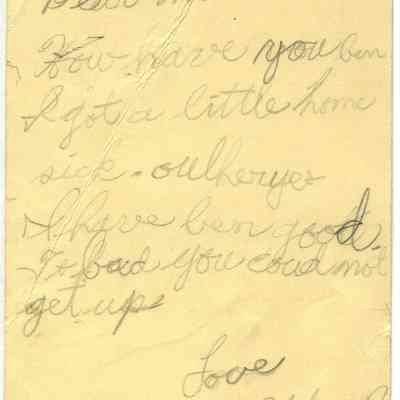 Dear
How have you ben
I got a little home
sick. oulheryes
I have ben good.
To bad you coud not
get up
Love